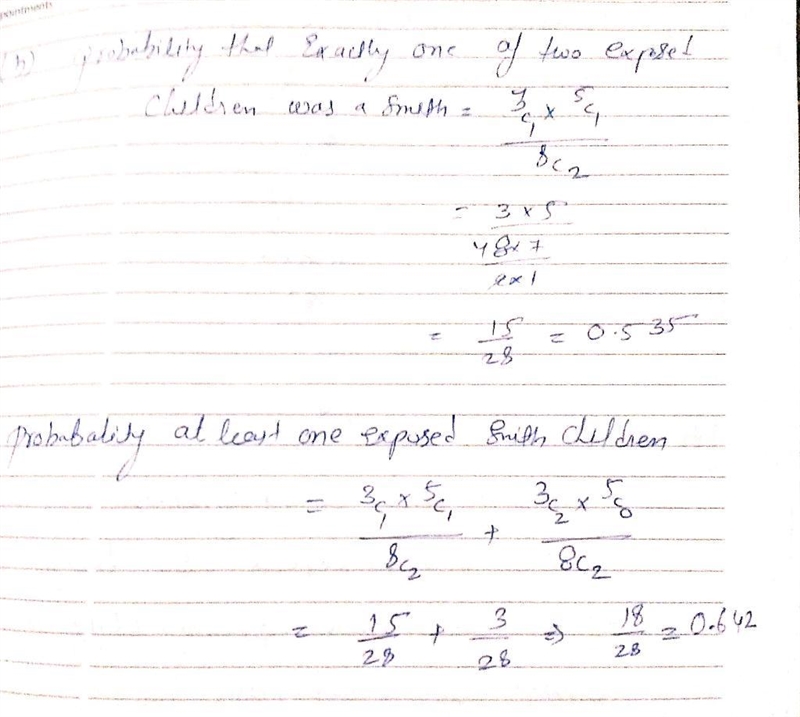 probability that Exactly one of two exposed
Children was a Smith = 3c1 x 5c1
8c2
= 3 x 5
4 8x7
2x1
= 15
28 = 0.535
probabality at least one exposed Smith Children
= 3c1 x 5c1 + 3c2 x 5c0
8c2 8c2
= 15 + 3 => 18 = 0.642
28 28 28